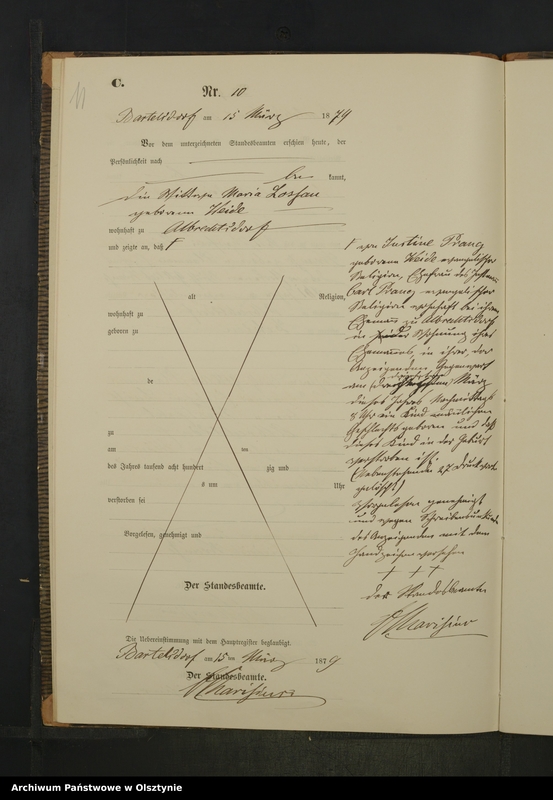 C.
11
Nr. 10
Bartelsdorf am 15 März 1879
Vor dem unterzeichneten Standesbeamten erschien heute, der
Persönlichkeit nach
be kannt,
die Wittwe Maria Lossau
geborene Heide
wohnhaft zu Albrechtsdorf
und zeigte an, daß
alt Religion,
wohnhaft zu
geboren zu
de
zu
am ten
des Jahres tausend acht hundert zig und
s um Uhr
verstorben sei
Vorgelesen, genehmigt und
Der Standesbeamte.
von Justine Prang
geborene Heide evangelischer
Religion, Ehefrau des
Carl Prang evangelischer
Religion wohnhaft bei ihrem
Ehemann zu Albrechtsdorf
in Wohnung ihres
Ehemannes, in ihrer, der
Anzeigenden Gegenwart
am März
dieses Jahres Nachmittags
8 Uhr ein Kind männlichen
Geschlechts geboren und daß
dieses Kind in der Geburt
verstorben ist.
(Nebenstehende 27 Druckworte
gelöscht)
Vorgelesen genehmigt
und wegen
der Anzeigenden mit dem
Handzeichen versehen
+ + +
der Standesbeamte
Die Uebereinstimmung mit dem Hauptregister beglaubigt.
Bartelsdorf am 15 ten März 1879
Der Standesbeamte.
Archiwum Państwowe w Olsztynie